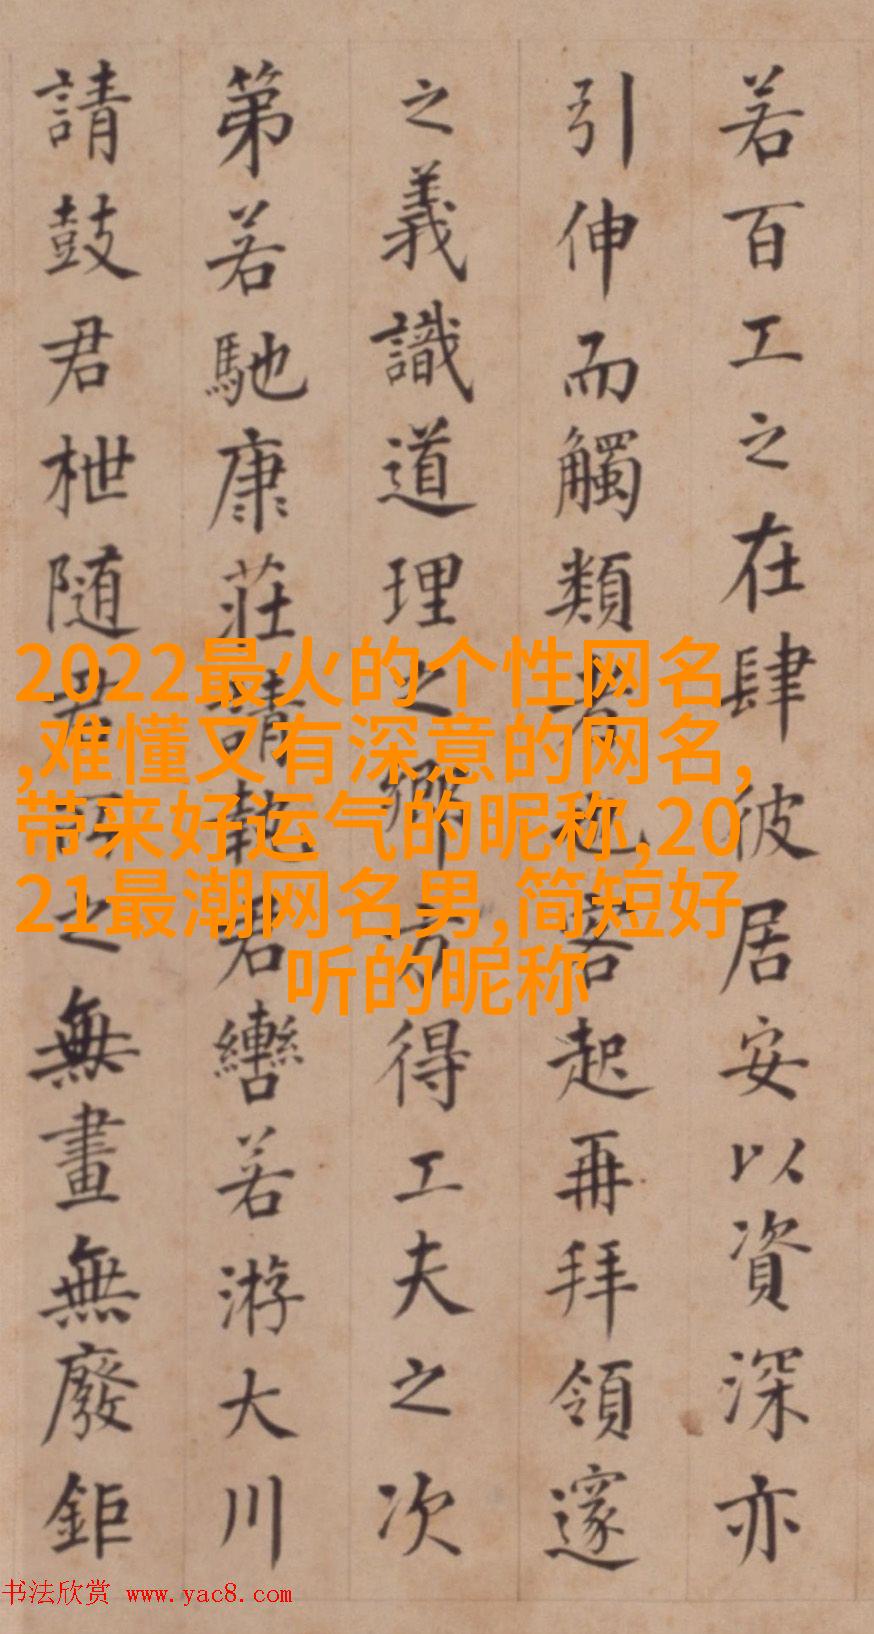 若百工之在肆彼居安以資深亦
引伸而觸類者也客起再拜領邃
之義識道理之鄉方得工夫之次
第若馳康莊請執君轡若游大川
請鼓君枻随君之無畫無廢鉅
2022最火的个性网名
,难懂又有深意的网名,
带来好运气的昵称,20
21最潮网名男,简短好
听的昵称
书法欣赏 www.yac8.com